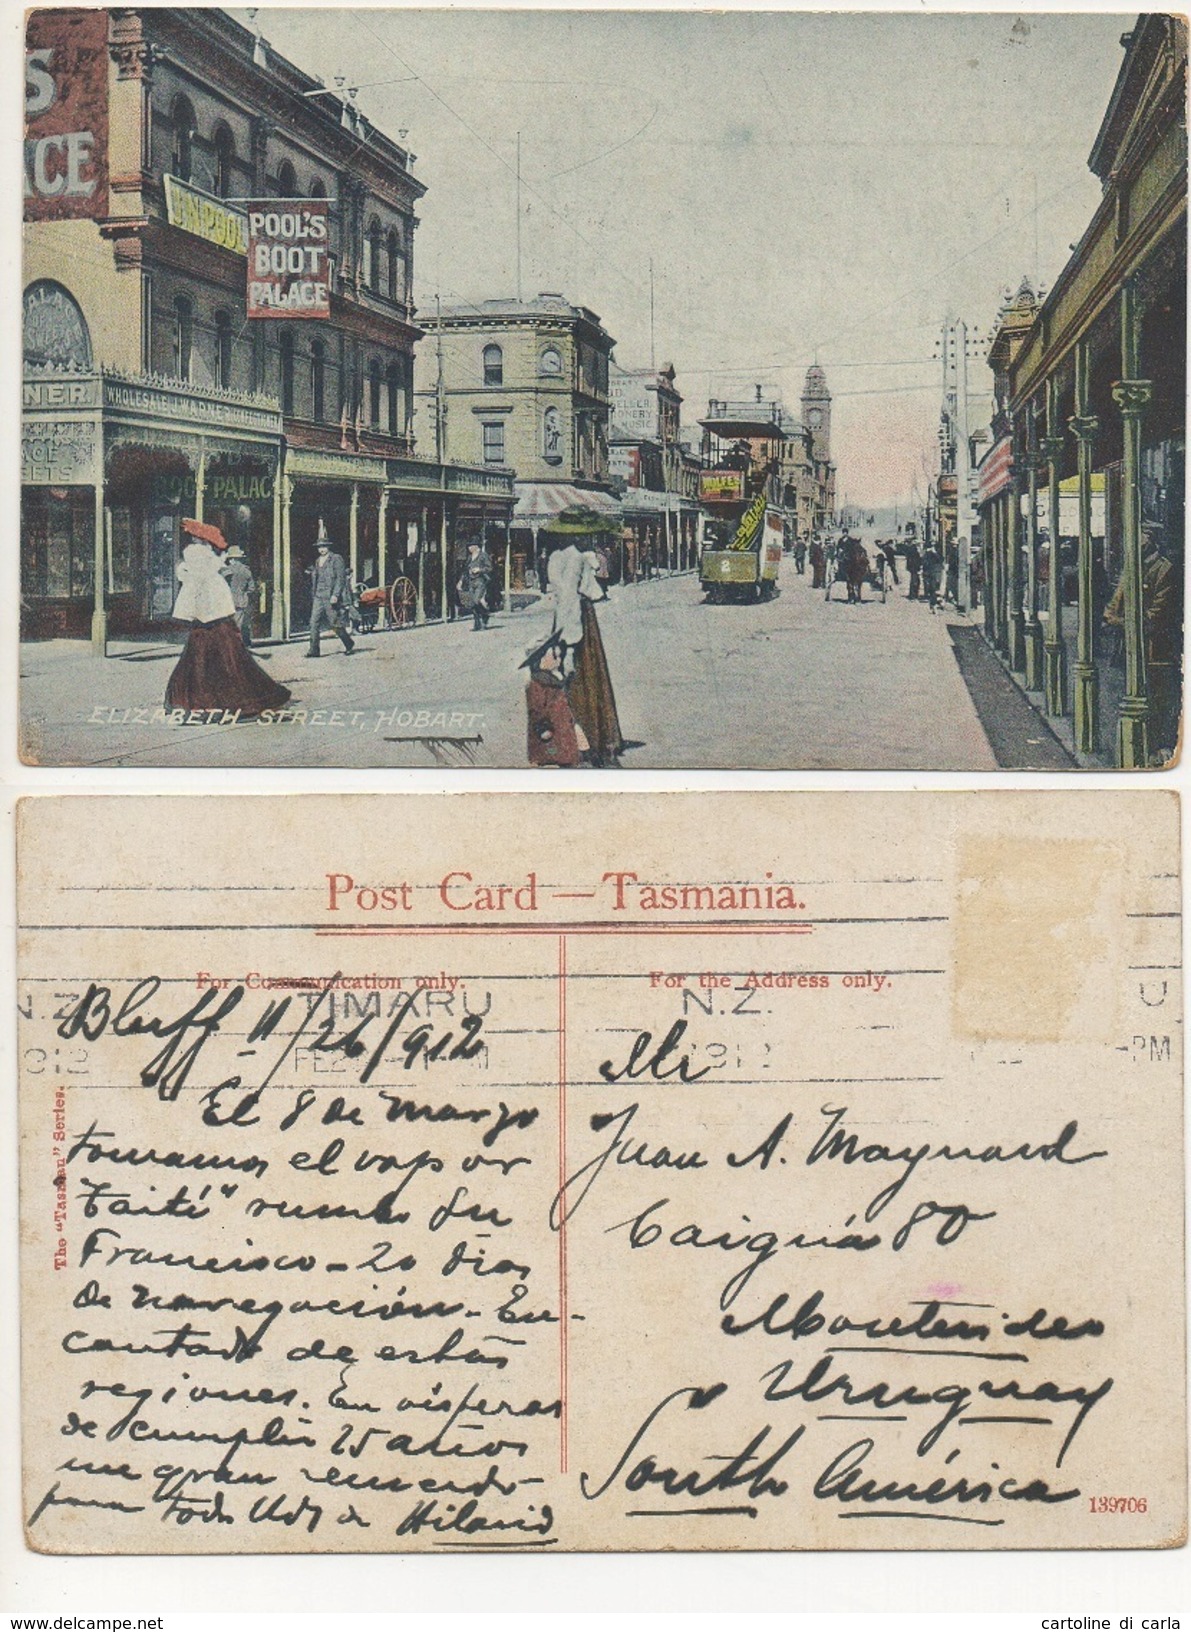 S
CE
J.N.POOL
POOL'S
BOOT
PALACE
PALAC
NER.
WHOLESALE
BOOT PALAC
WOLFES
2
ELIZABETH STREET, HOBART.
Post Card — Tasmania.
For Communication only.
For the Address only.
N.Z.
TIMARU
N.Z.
1912
-PM
The "Tasman" Series.
Bluff 11/26/912
El 8 de Marzo
tomamos el vapor
"Taiti" rumbo Sn
Francisco - 20 dias
de navegación - En-
cantado de estas
regiones. En vísperas
de cumplir 25 años
un gran recuerdo
para todos Uds de Hilario
Mr
Juan A. Maynard
Caiguá 80
Montevideo
Uruguay
South América
139706
cartoline di carla
www.delcampe.net